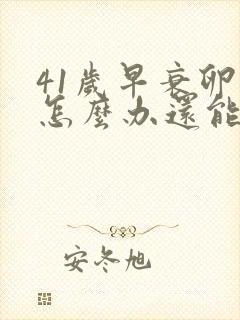 41歲早衰卵
怎麼办還能
安冬旭